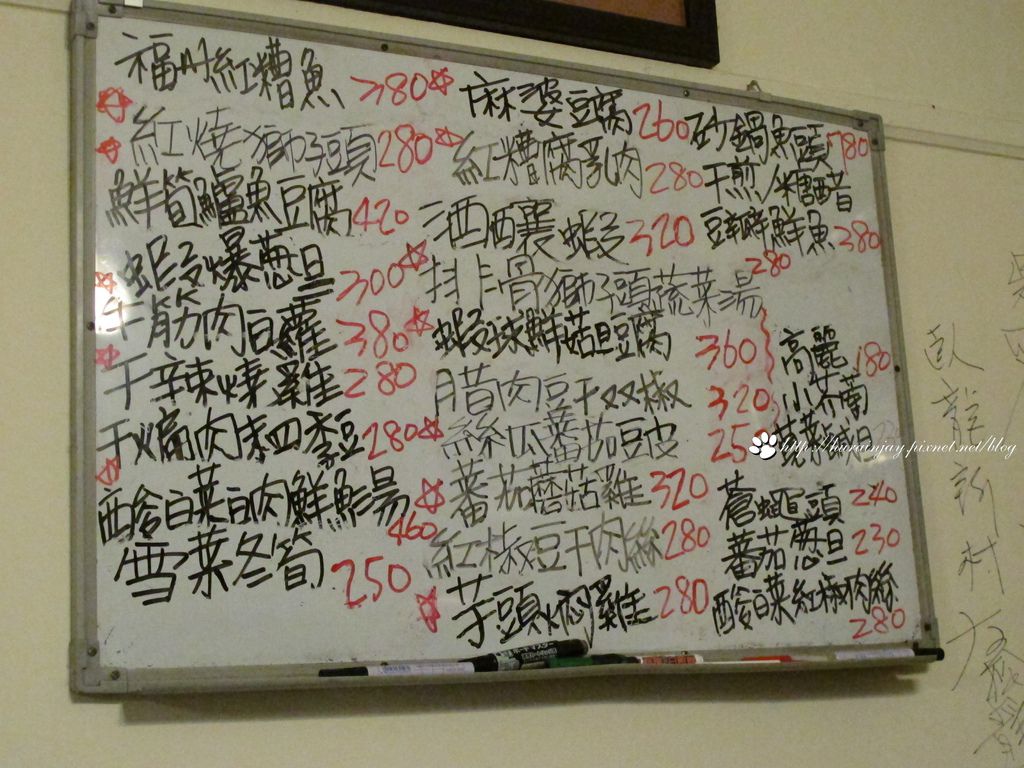 福州紅糟魚 280
紅燒獅子頭 280
鮮筍鱸魚豆腐 420
蝦爆蔥旦 300
牛筋肉白蘿 380
干辣燒雞 280
干煸肉末四季豆 280
酸白菜白肉鮮魚湯 460
雪菜冬筍 250
麻婆豆腐 260
紅糟腐乳肉 280
酒釀蝦 320
排骨獅子頭蔬菜湯 280
蝦球鮮菇旦豆腐 360
腊肉豆干双椒 320
絲瓜蕃茄豆皮 25
蕃茄蘑菇雞 320
紅椒豆干肉絲 280
芋頭燜雞 280
砂鍋魚頭 780
干煎/糖醋
豆瓣鮮魚 280
高麗 180
小芥蘭
http://hurainjay.pixnet.net/blog
蒼蠅頭 240
蕃茄蔥旦 230
酸白菜紅椒肉絲 280
臥龍新村